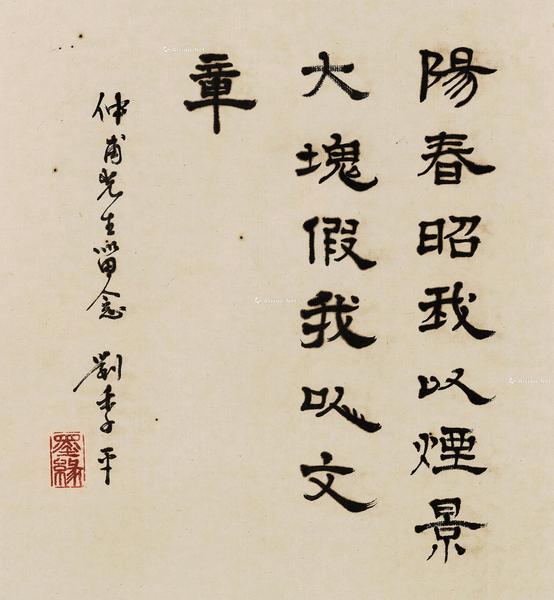 陽春昭我以煙景
大塊假我以文
章
仲甫先生留念 劉季平
墨緣